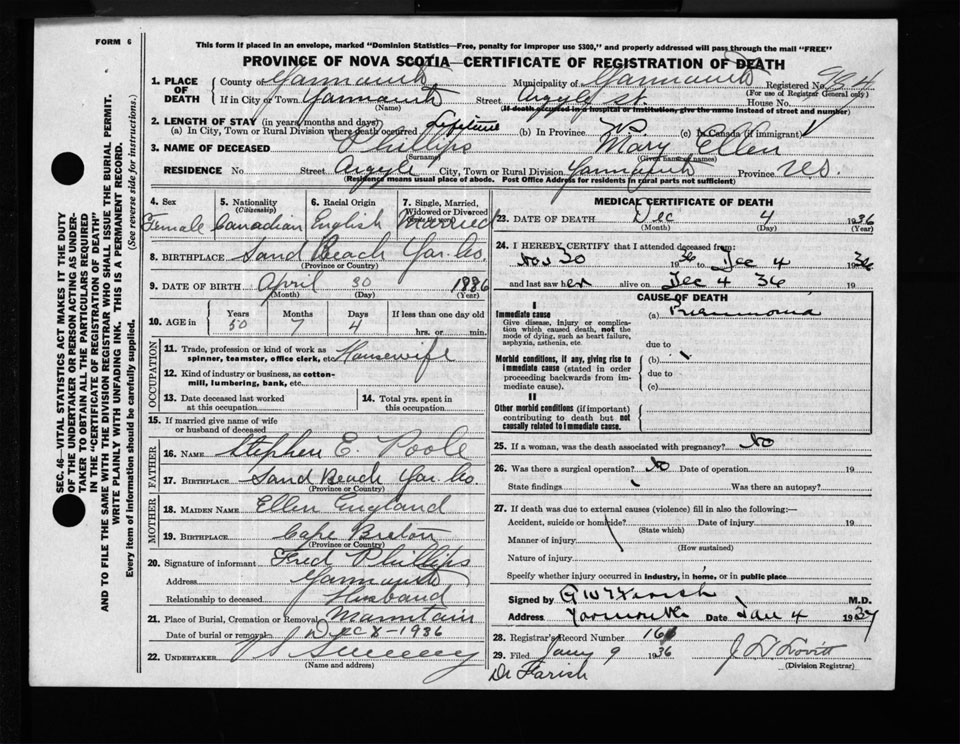 FORM 6
This form if placed in an envelope, marked "Dominion Statistics—Free, penalty for improper use $300," and properly addressed will pass through the mail "FREE"
PROVINCE OF NOVA SCOTIA—CERTIFICATE OF REGISTRATION OF DEATH
SEC. 46—VITAL STATISTICS ACT MAKES IT THE DUTY
OF THE UNDERTAKER OR PERSON ACTING AS UNDER-
TAKER TO OBTAIN ALL THE PARTICULARS REQUIRED
IN THE "CERTIFICATE OF REGISTRATION OF DEATH"
AND TO FILE THE SAME WITH THE DIVISION REGISTRAR WHO SHALL ISSUE THE BURIAL PERMIT.
WRITE PLAINLY WITH UNFADING INK. THIS IS A PERMANENT RECORD.
Every item of information should be carefully supplied. (See reverse side for instructions.)
1. PLACE OF DEATH County of Yarmouth Municipality of Yarmouth Registered No. 934
(For use of Registrar General only)
If in City or Town Yarmouth Street Argyle St. House No.
(If death occurred in a hospital or institution, give the name instead of street and number)
2. LENGTH OF STAY (in years, months and days)
(a) In City, Town or Rural Division where death occurred Lifetime (b) In Province (c) In Canada (if immigrant)
3. NAME OF DECEASED Phillips Mary Ellen
(Surname) (Given name or names)
RESIDENCE No. Street Argyle City, Town or Rural Division Yarmouth Province N.S.
(Residence means usual place of abode. Post Office Address for residents in rural parts not sufficient)
4. Sex 5. Nationality (Citizenship) 6. Racial Origin 7. Single, Married, Widowed or Divorced
Female Canadian English Married
8. BIRTHPLACE Sand Beach Yar. Co.
(Province or Country)
9. DATE OF BIRTH April 30 1886
(Month) (Day) (Year)
10. AGE in Years Months Days If less than one day old
50 7 4 hrs. or min.
OCCUPATION
11. Trade, profession or kind of work as spinner, teamster, office clerk, etc. Housewife
12. Kind of industry or business, as cotton-mill, lumbering, bank, etc.
13. Date deceased last worked at this occupation
14. Total yrs. spent in this occupation
15. If married give name of wife or husband of deceased
FATHER
16. NAME Stephen E. Poole
17. BIRTHPLACE Sand Beach Yar. Co.
(Province or Country)
MOTHER
18. MAIDEN NAME Ellen England
19. BIRTHPLACE Cape Breton
(Province or Country)
20. Signature of informant Fred Phillips
Address Yarmouth
Relationship to deceased Husband
21. Place of Burial, Cremation or Removal Mountain
Date of burial or removal Dec 8-1936
22. UNDERTAKER Sweeny
(Name and address)
MEDICAL CERTIFICATE OF DEATH
23. DATE OF DEATH Dec 4 1936
(Month) (Day) (Year)
24. I HEREBY CERTIFY that I attended deceased from:
Nov 30 1936 to Dec 4 1936
and last saw her alive on Dec 4 36 19
CAUSE OF DEATH
I
Immediate cause (a) Pneumonia
Give disease, injury or complication which caused death, not the mode of dying, such as heart failure, asphyxia, asthenia, etc.
due to
Morbid conditions, if any, giving rise to immediate cause (stated in order proceeding backwards from immediate cause). (b)
due to
(c)
II
Other morbid conditions (if important) contributing to death but not causally related to immediate cause.
25. If a woman, was the death associated with pregnancy? No
26. Was there a surgical operation? No Date of operation 19
State findings Was there an autopsy?
27. If death was due to external causes (violence) fill in also the following:—
Accident, suicide or homicide? Date of injury 19
(State which)
Manner of injury
(How sustained)
Nature of injury
Specify whether injury occurred in industry, in home, or in public place
Signed by G W T Farish M.D.
Address Yarmouth NS Date Jan 4 1937
28. Registrar's Record Number 161
29. Filed Jany 9 1936 J D Lovitt
(Division Registrar)
Dr Farish